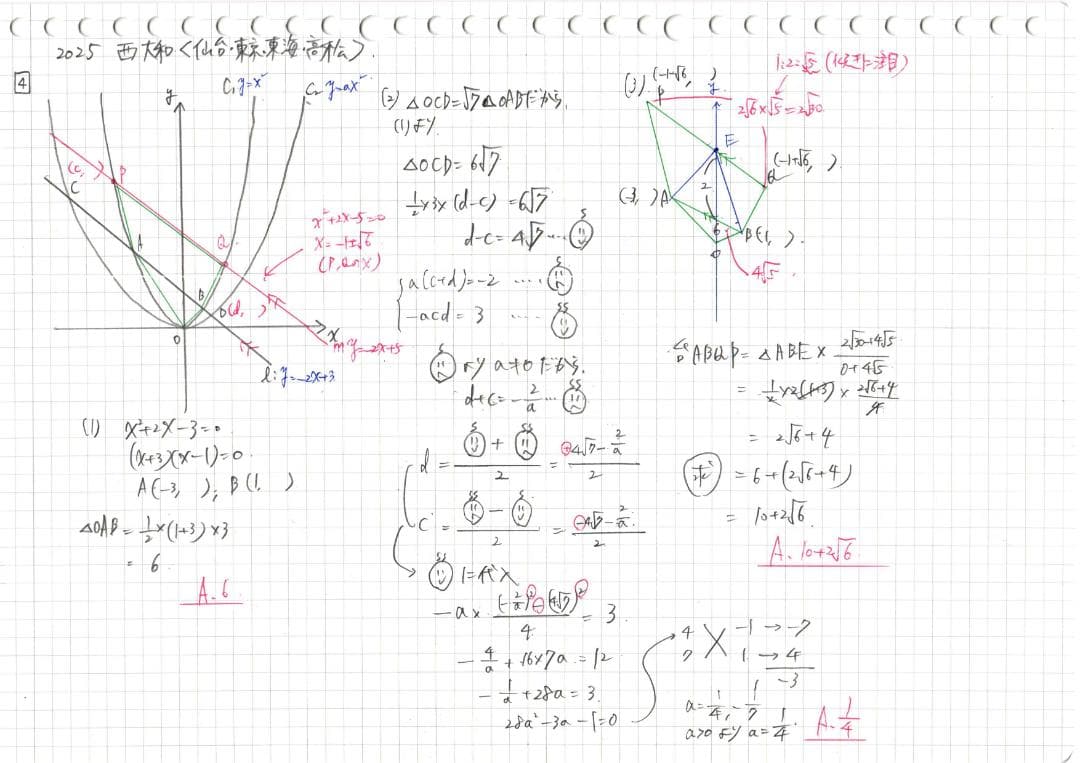 2025 西大和〈仙台・東京・東海・高松〉.
4
C₁ y=x²
C₂ y=ax²
y
(c, )
C
P
A
Q
B
D(d, )
O
x
x²+2x-5=0
x=-1±√6
(P,Qのx)
m y=-2x+5
l: y=-2x+3
(1) x²+2x-3=0
(x+3)(x-1)=0
A(-3, ), B(1, )
△OAB=1/2×(1+3)×3
= 6.
A. 6
(2) △OCD=√7△OABだから,
(1)より
△OCD=6√7
1/2×3×(d-c)=6√7
d-c=4√7…
a(c+d)=-2 …
-acd=3 …
より a≠0だから,
d+c=-2/a…
d= + /2 = +4√7-2/a /2
c= - /2 = -4√7-2/a /2
に代入
-a× (-2/a)²-(4√7)² /4 = 3
-4/a+16×7a=12
-1/a+28a=3
28a²-3a-1=0
4 -1→-7
7 1→4
-3
a=1/4, -1/7
a>0より a=1/4.
A. 1/4
(3)
(-1-√6, )
P
y
1:2=√5 (傾きに注目)
2√6×√5=2√30
E
(-1+√6, )
Q
(-3, )A
2
6
B(1, ).
O
4√5.
ABQP=△ABE× 2√30+4√5 / 0+4√5
=1/2×2(1+3)× 2√6+4 /4
= 2√6+4
求 =6+(2√6+4)
= 10+2√6
A. 10+2√6